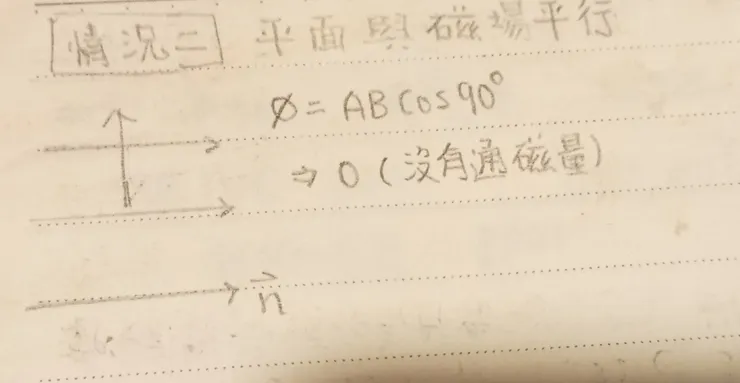 情況二 平面與磁場平行
Ø = AB Cos 90°
⇒ 0 (沒有通磁量)
n⃗